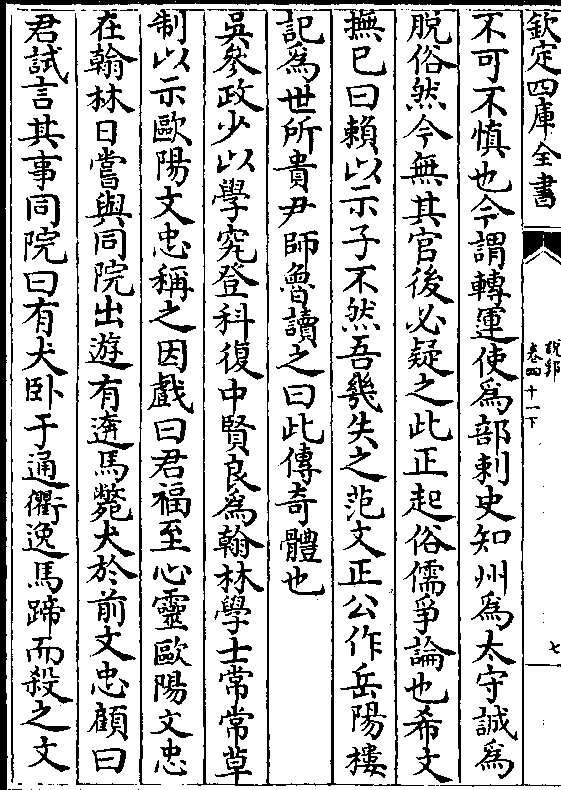 欽定四庫全書
説郛
卷四十一下
七
不可不慎也今謂轉運使為部刺史知州為太守誠為
脱俗然今無其官後必疑之此正起俗儒爭論也希文
撫已曰賴以示子不然吾幾失之范文正公作岳陽樓
記為世所貴尹師魯讀之曰此傳奇體也
吳參政少以學究登科復中賢良為翰林學士常常草
制以示歐陽文忠稱之因戲曰君福至心靈歐陽文忠
在翰林日嘗與同院出遊有奔馬斃犬於前文忠顧曰
君試言其事同院曰有犬卧于通衢逸馬蹄而殺之文